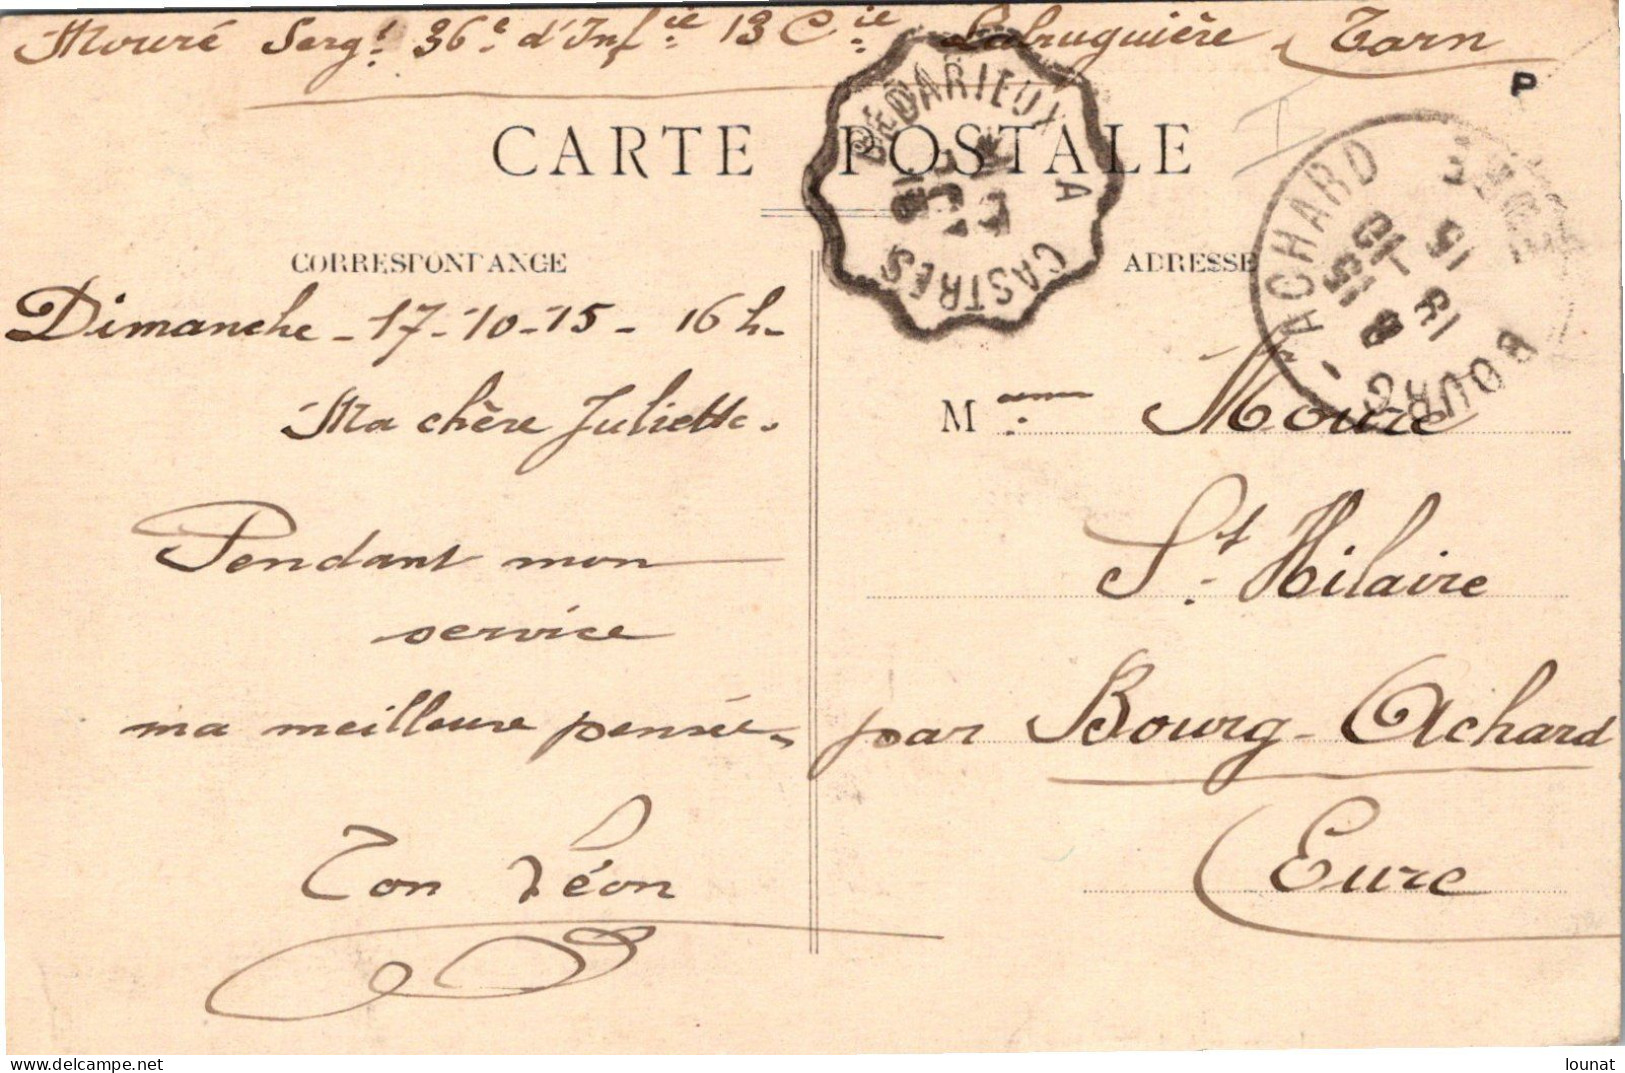 Mouré Sergt 36e d'Infie 13 Cie Labruguière Tarn
P
CARTE POSTALE
BÉDARIEUX A CASTRES
BOURG-ACHARD
CORRESPONDANCE
ADRESSE
Dimanche - 17-10-15 - 16 h-
Ma chère Juliette.
Pendant mon
service
ma meilleure pensée.
Ton Léon
Mme Mouré
St. Hilaire
par Bourg-Achard
Eure
lounat